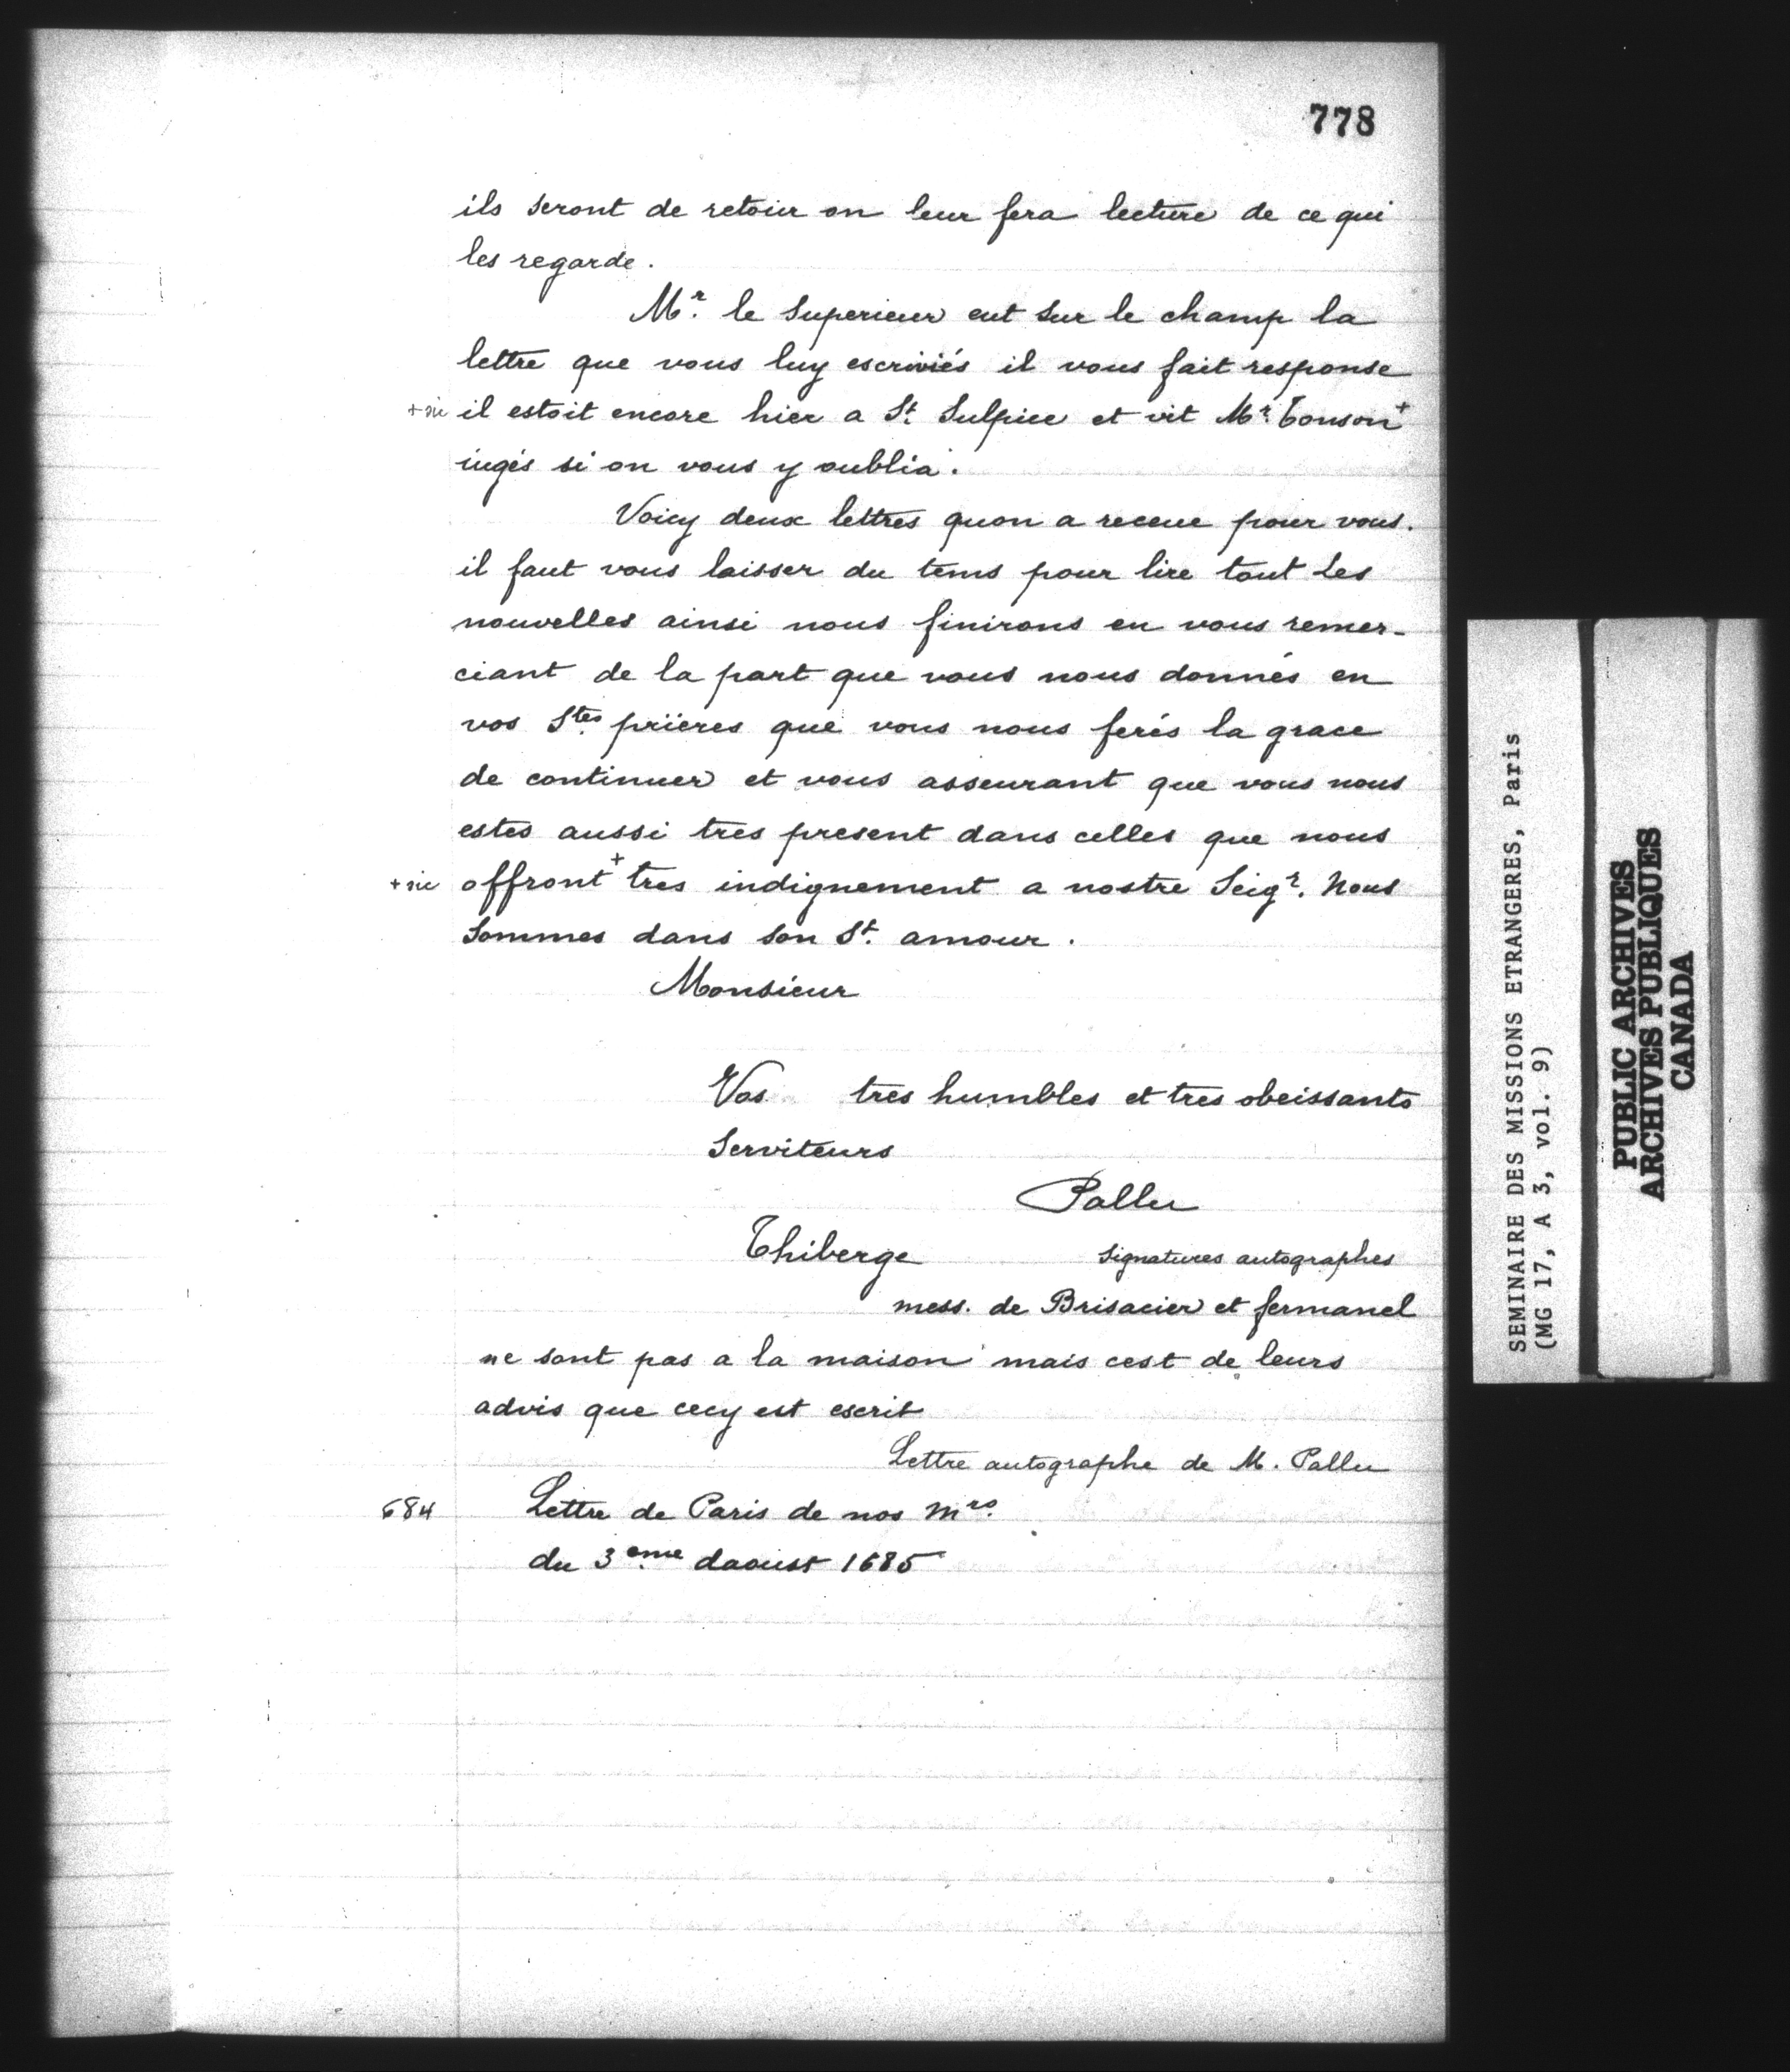 778
ils seront de retour on leur fera lecture de ce qui
les regarde.
Mr. le Superieur eut sur le champ la
lettre que vous luy escriviés il vous fait response
+ sic il estoit encore hier a St. Sulpice et vit Mr. Tonson+
iugés si on vous y oublia.
Voicy deux lettres quon a receue pour vous.
il faut vous laisser du tems pour lire tout les
nouvelles ainsi nous finirons en vous remer-
ciant de la part que vous nous donnés en
vos Stes. prïeres que vous nous ferés la grace
de continuer et vous asseurant que vous nous
estes aussi tres present dans celles que nous
+ sic offront+ tres indignement a nostre Seigr. Nous
Sommes dans son St. amour.
Monsieur
Vos tres humbles et tres obeissants
Serviteurs
Pallu
Thiberge signatures autographes
mess. de Brisacier et fermanel
ne sont pas a la maison mais cest de leurs
advis que cecy est escrit
Lettre autographe de M. Pallu
684 Lettre de Paris de nos Mrs.
du 3eme daoust 1685
SEMINAIRE DES MISSIONS ETRANGERES, Paris
(MG 17, A 3, vol. 9)
PUBLIC ARCHIVES
ARCHIVES PUBLIQUES
CANADA